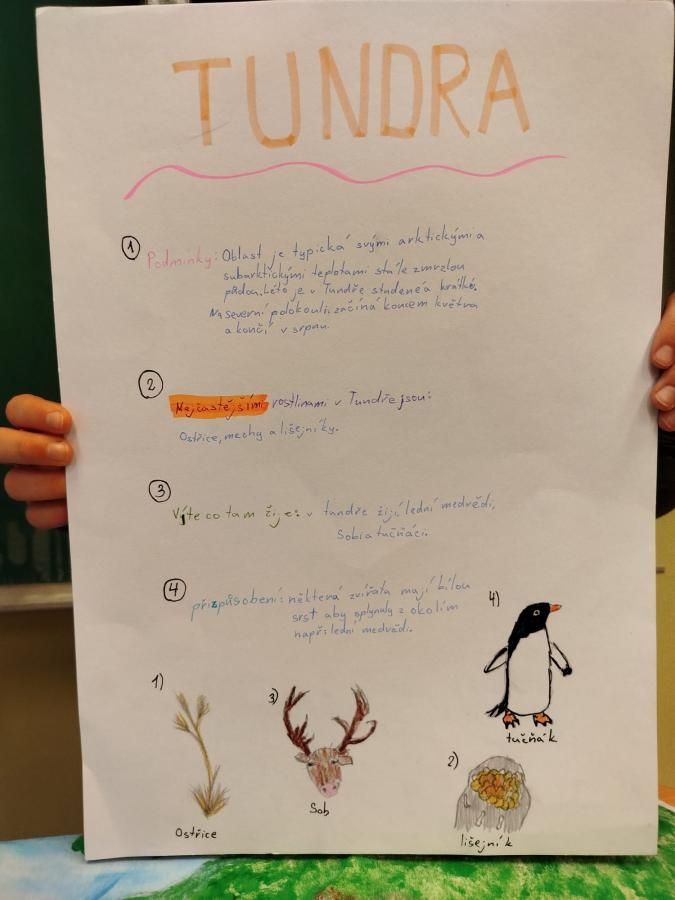 TUNDRA
1 Podmínky: Oblast je typická svými arktickými a
subarktickými teplotami stále zmrzlou
půdou. Léto je v Tundře studené a krátké.
Na severní polokouli začíná koncem května
a končí v srpnu.
2
Nejčastějšími rostlinami v Tundře jsou:
Ostřice, mechy a lišejníky.
3
Víte co tam žije: v tundře žijí lední medvědi,
Sobi a tučňáci.
4 přizpůsobení: některá zvířata mají bílou
srst aby splynuly z okolím
např: lední medvědi.
4)
tučňák
1)
Ostřice
3)
Sob
2)
lišejník